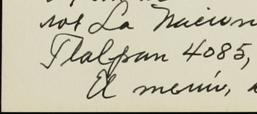 La Nacion
Tlalpan 4085,
El menú,